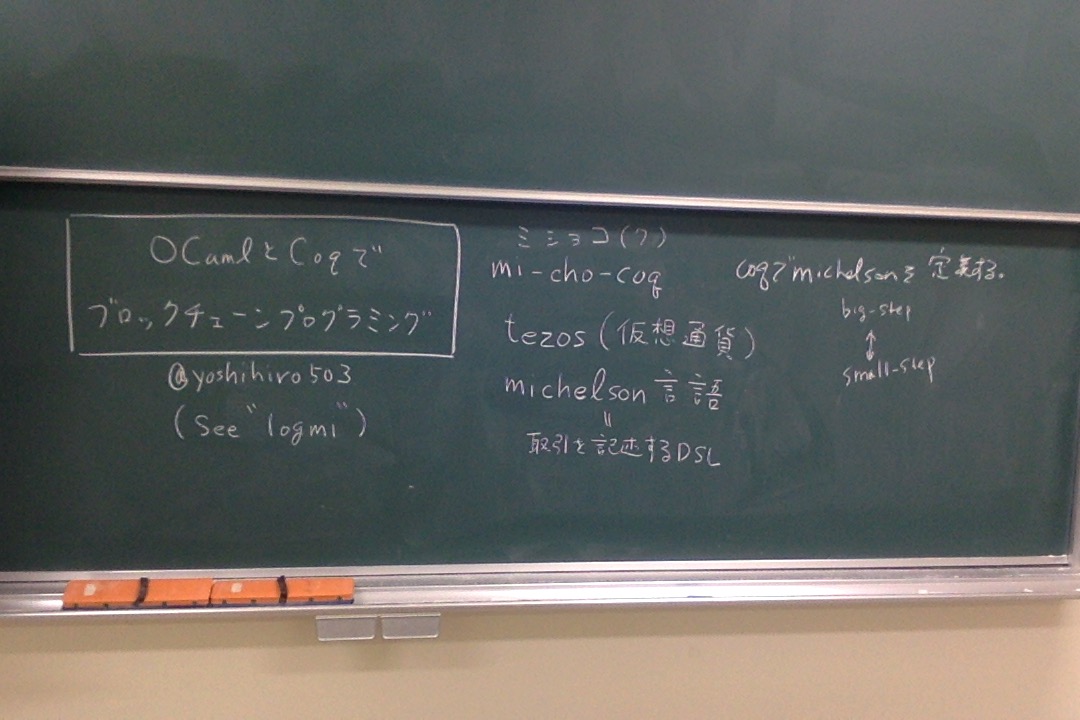 OCamlとCoqで
ブロックチェーンプログラミング
@yoshihiro503
(See "logmi")
ミショコ(ク)
mi-cho-coq
tezos(仮想通貨)
michelson言語
=
取引を記述するDSL
coqでmichelsonを定義する。
big-step
↕
small-step